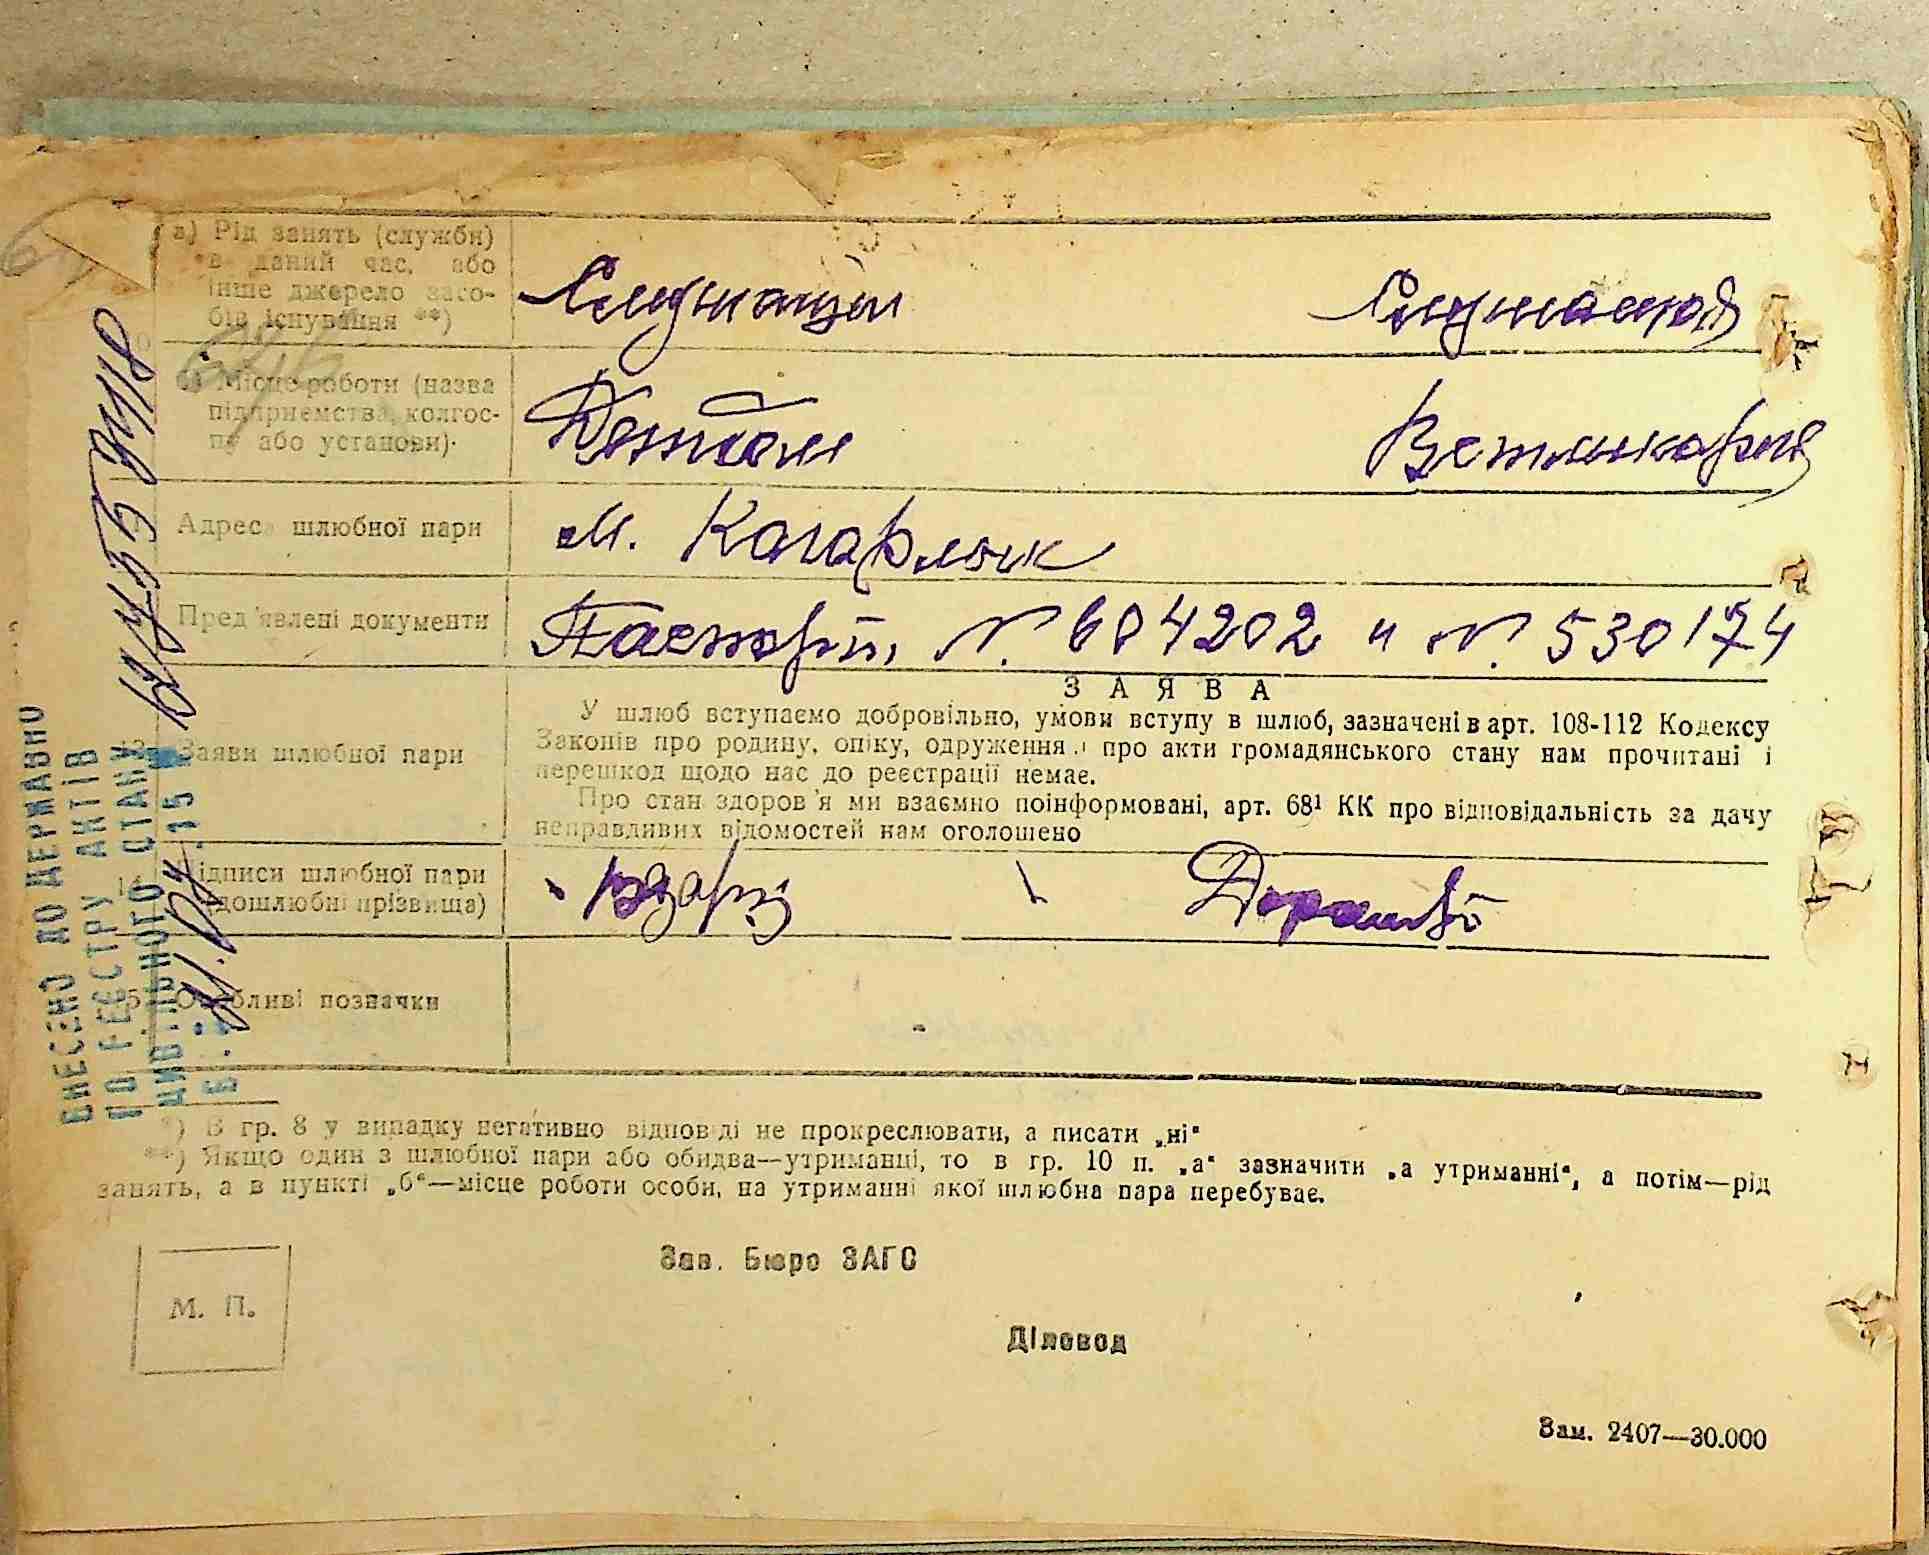 а) Рід занять (служби)
в даний час, або
інше джерело засо-
бів існування **)
Служащий
Служащая
б) Місце роботи (назва
підприємства, колгос-
пу або установи).
Детдом
Адреса шлюбної пари
м. Кагарлык
Пред'явлені документи
Паспорт, N. 604202 и N. 530174
ЗАЯВА
У шлюб вступаємо добровільно, умови вступу в шлюб, зазначені в арт. 108-112 Кодексу
Законів про родину, опіку, одруження і про акти громадянського стану нам прочитані і
перешкод щодо нас до реєстрації немає.
Про стан здоров'я ми взаємно поінформовані, арт. 68¹ КК про відповідальність за дачу
неправдивих відомостей нам оголошено
13 Заяви шлюбної пари
14 Підписи шлюбної пари
(дошлюбні прізвища)
15 Особливі позначки
ВНЕСЕНО ДО ДЕРЖАВНО
ГО РЕЄСТРУ АКТІВ
ЦИВІЛЬНОГО СТАНУ
*) В гр. 8 у випадку негативно відповіді не прокреслювати, а писати „ні“
**) Якщо один з шлюбної пари або обидва—утриманці, то в гр. 10 п. „а“ зазначити „а утриманні“, а потім—рід
занять, а в пункті „б“—місце роботи особи, на утриманні якої шлюбна пара перебуває.
Зав. Бюро ЗАГС
М. П.
Діловод
Зам. 2407—30.000